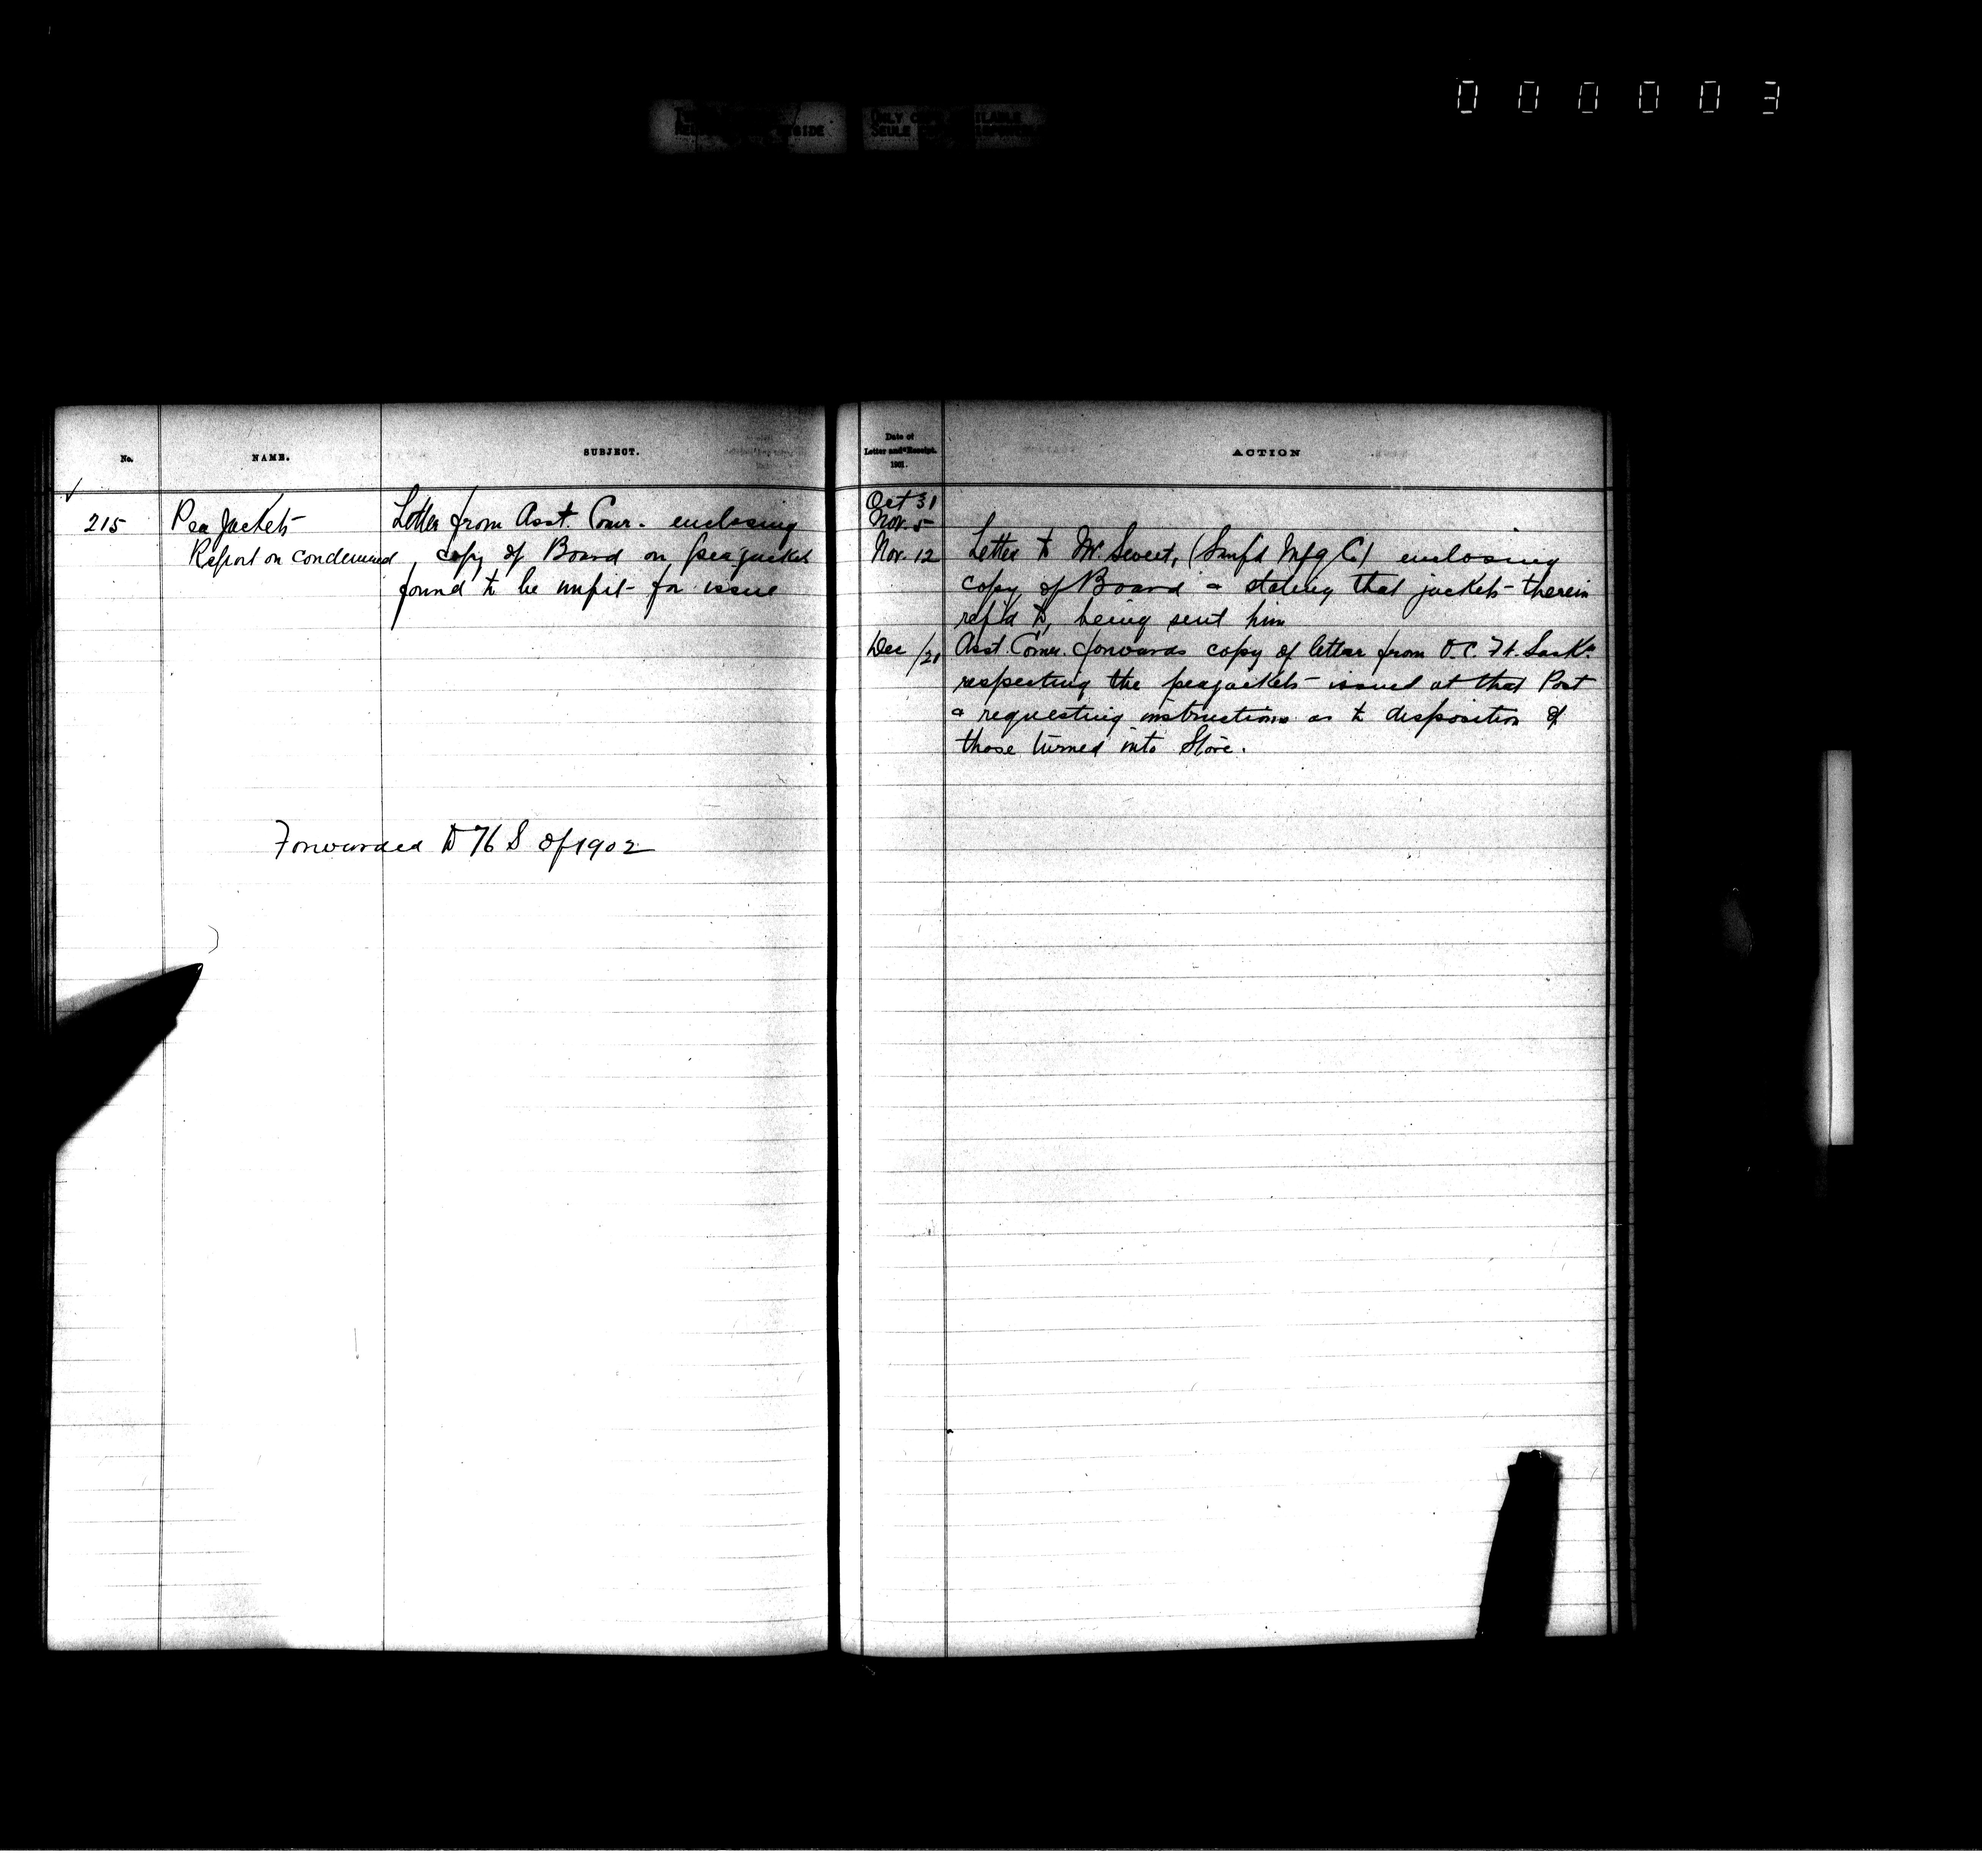 000003
ONLY COPY AVAILABLE
SEULE
No.
NAME.
SUBJECT.
215
Pea Jackets
Report on condemned
Letter from Asst. Comr. enclosing
copy of Board on pea jackets
found to be unfit for issue
Forwarded to 76 S of 1902
Date of
Letter and Receipt.
1901.
ACTION
Oct 31
Nov. 5
Nov. 12 Letter to Mr. Sweet, (Sanf'd Mfg Co) enclosing
copy of Board & stating that jackets therein
ref'd to, being sent him
Dec /21 Asst. Comr. forwards copy of letter from O.C. Ft. Sask'n
respecting the peajackets issued at that Post
& requesting instructions as to disposition of
those turned into Store.